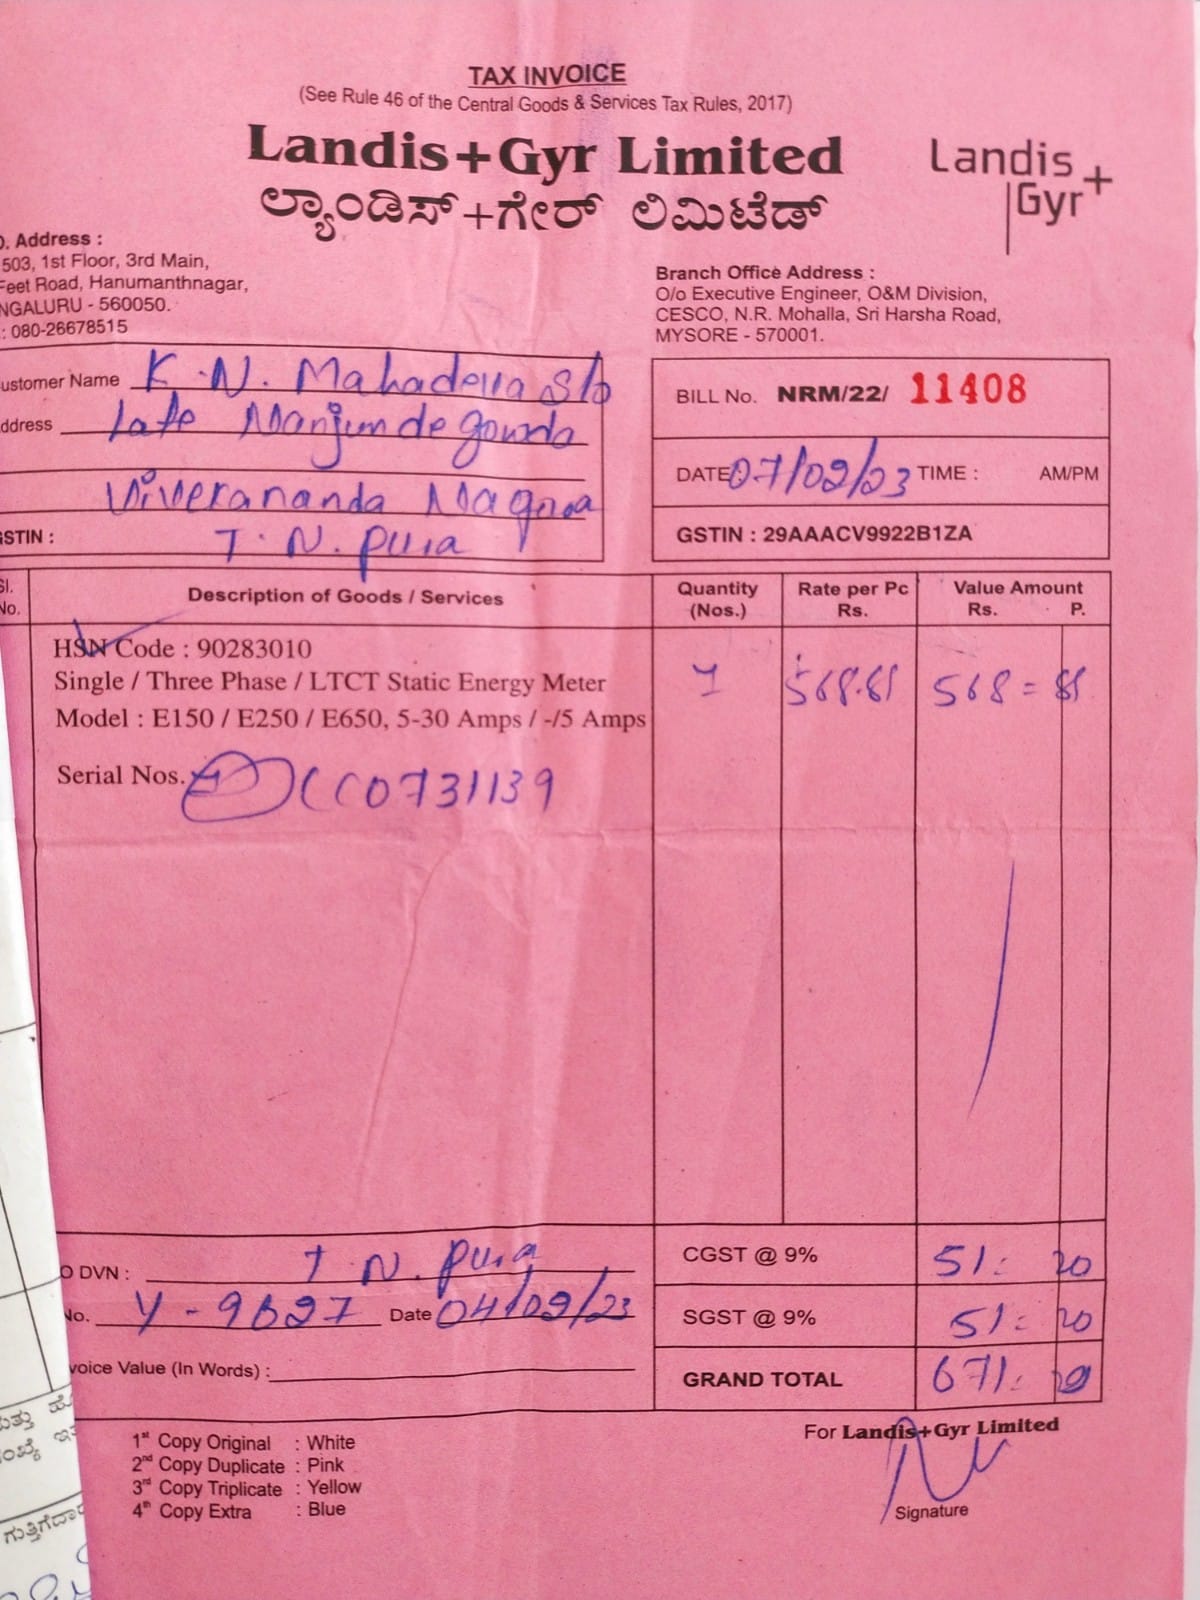 TAX INVOICE
(See Rule 46 of the Central Goods & Services Tax Rules, 2017)
Landis+Gyr Limited
ಲ್ಯಾಂಡಿಸ್+ಗೇರ್ ಲಿಮಿಟೆಡ್
Landis+
Gyr
. Address :
503, 1st Floor, 3rd Main,
Feet Road, Hanumanthnagar,
NGALURU - 560050.
: 080-26678515
Branch Office Address :
O/o Executive Engineer, O&M Division,
CESCO, N.R. Mohalla, Sri Harsha Road,
MYSORE - 570001.
ustomer Name K.N. Mahadeva S/o
ddress late Manjundegowda
Vivekananda Nagara
GSTIN : T.N. Pura
BILL No. NRM/22/ 11408
DATE 07/02/23 TIME : AM/PM
GSTIN : 29AAACV9922B1ZA
Sl. No. Description of Goods / Services Quantity (Nos.) Rate per Pc Rs. Value Amount Rs. P.
HSN Code : 90283010
Single / Three Phase / LTCT Static Energy Meter 1 568.81 568 = 81
Model : E150 / E250 / E650, 5-30 Amps / -/5 Amps
Serial Nos. CC0731139
O DVN : T.N. Pura
No. Y-9627 Date 04/02/23
voice Value (In Words) :
CGST @ 9% 51: 20
SGST @ 9% 51: 20
GRAND TOTAL 671:
1st Copy Original : White
2nd Copy Duplicate : Pink
3rd Copy Triplicate : Yellow
4th Copy Extra : Blue
For Landis+Gyr Limited
Signature